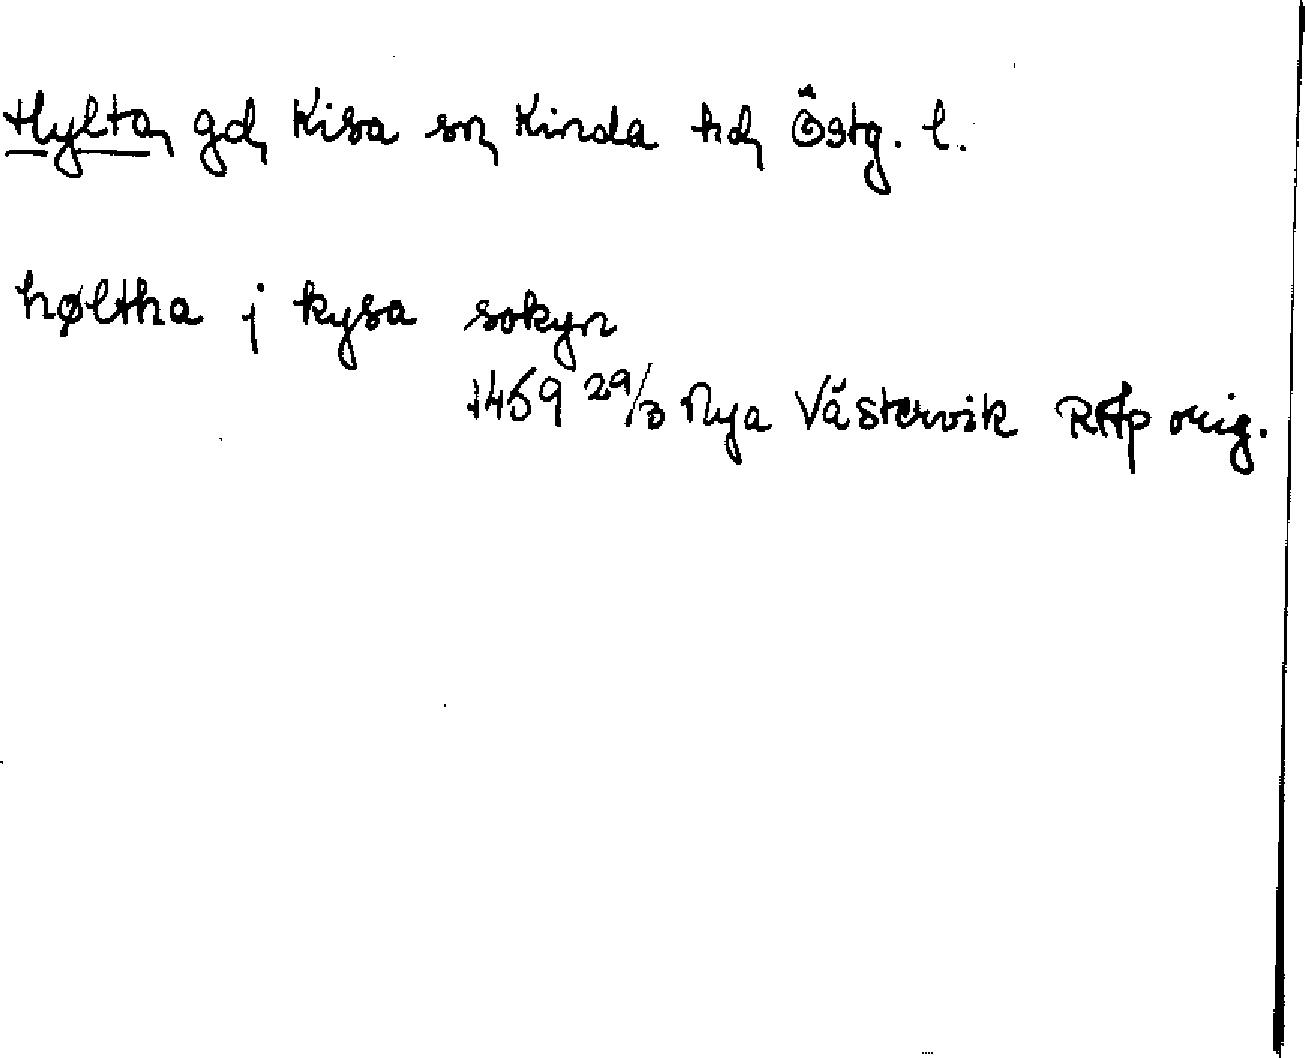 Hylta, gd, Kisa sn, Kinda hd, Östg. l.
høltha j kysa sokyn
1459 29/3 Nya Västervik RAp orig.